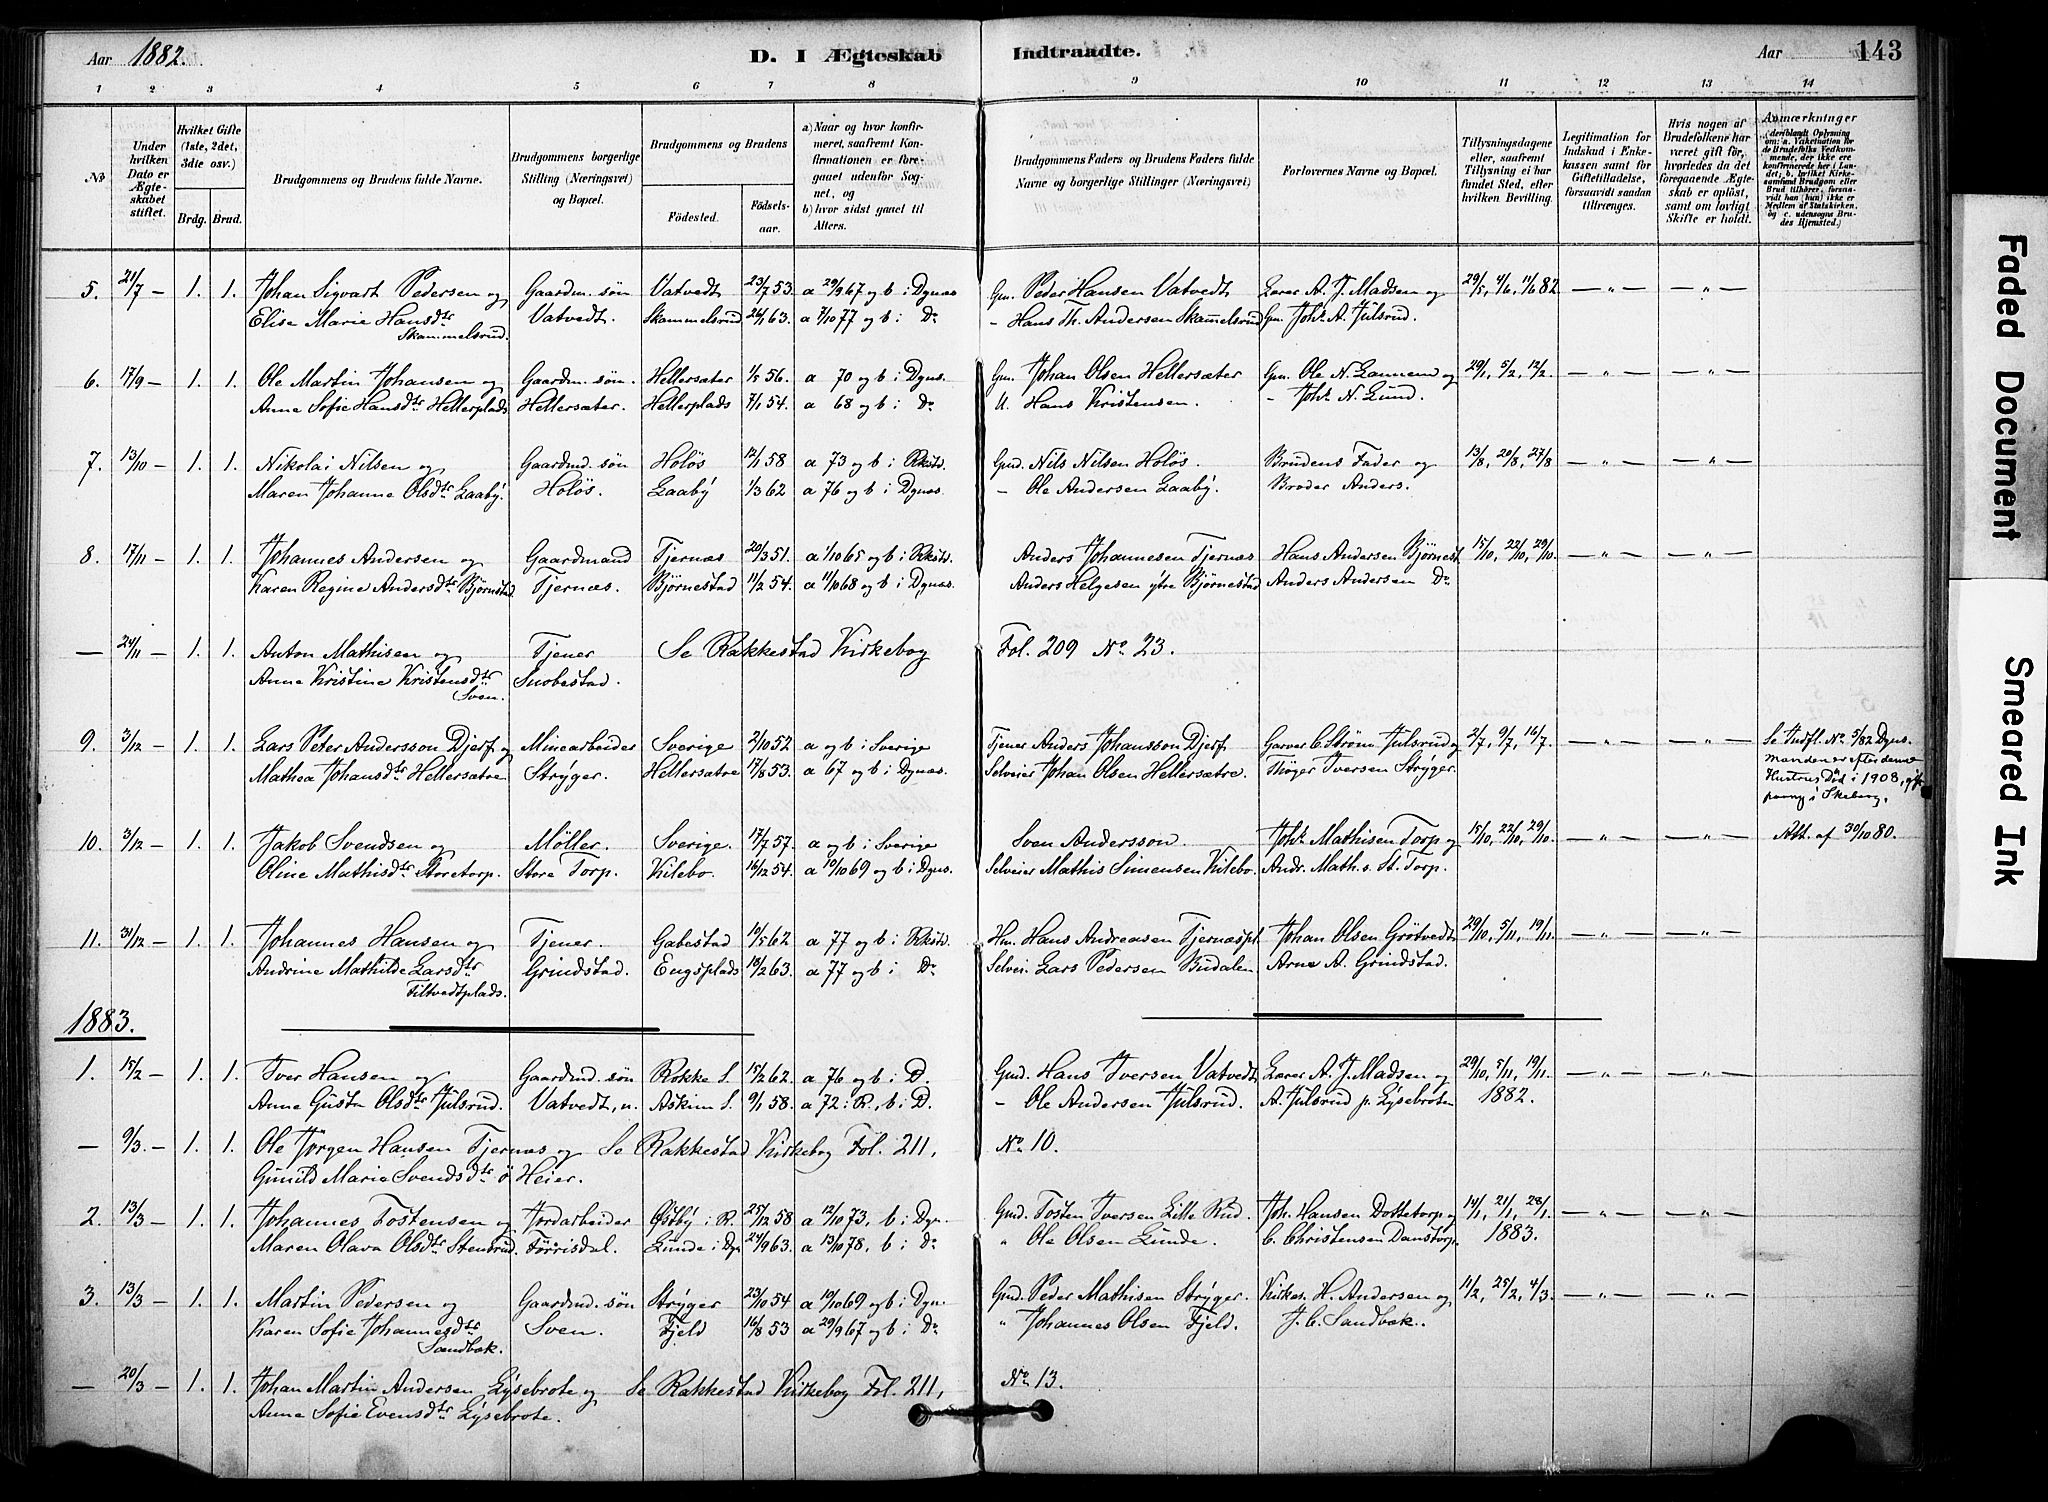 Aar 1882. D. I Ægteskab Indtraadte. Aar 143
1 2 3 4 5 6 7 8 9 10 11 12 13 14
No
Under hvilken Dato er Ægteskabet stiftet.
Hvilket Gifte (1ste, 2det, 3die osv.)
Brdg. Brud.
Brudgommens og Brudens fulde Navne.
Brudgommens borgerlige Stilling (Næringsvei) og Bopæl.
Brudgommens og Brudens
Födested. Födsels-aar.
a) Naar og hvor konfirmeret, saafremt Konfirmationen er foregaaet udenfor Sognet, og
b) hvor sidst gaaet til Alters.
Brudgommens Faders og Brudens Faders fulde Navne og borgerlige Stillinger (Næringsvei)
Forlovernes Navne og Bopæl.
Tillysningsdagene eller, saafremt Tillysning ei har fundet Sted, efter hvilken Bevilling.
Legitimation for Indskud i Enkekassen samt for Giftetilladelse, forsaavidt saadan tiltrænges.
Hvis nogen af Brudefolkene har været gift för, hvorledes da det foregaaende Ægteskab er oplöst, samt om lovligt Skifte er holdt.
Anmærkninger (deriblandt Oplysning om: a. Vaksination for de Brudefolks Vedkommende, der ikke ere konfirmerede her i Landet; b. hvilket Kirkesamfund Brudgom eller Brud tilhörer, forsaavidt han (hun) ikke er Medlem af Statskirken, og c. udensogns Brudes Hjemsted.)
5. 21/7 — 1. 1. Johan Sigvart Pedersen og Gaardm. søn Vatvedt 23/7 53 a 29/9 67 og b i Dgnæs Gm. Peder Hansen Vatvedt Lærer A. J. Madsen og 29/5, 4/6, 11/6 82 — " — — " —
Elise Marie Hansdtr Skammelsrud. Vatvedt. Skammelsrud 26/1 63. a 7/10 77 og b i Do — Hans Th. Andersen Skammelsrud Gm. Johs. A. Julsrud.
6. 17/9 — 1. 1. Ole Martin Johansen og Gaardm. søn. Hellersæter 1/5 56. a 70 og b i Dgnæs. Gm. Johan Olsen Hellersæter Gm. Ole N. Lannem og 29/1, 5/2, 12/2. — " — — " —
Anne Sofie Hansdtr Hellerplads Hellersæter. Hellerplads 7/1 54. a 68 og b i Do U. Hans Kristensen. — Johs. N. Lund.
7. 13/10 — 1. 1. Nikolai Nilsen og Gaardmd. søn Holøs 12/1 58 a 73 og b i Rkstd. Gmd. Nils Nilsen Holøs. Brudens Fader og 13/8, 20/8, 27/8 — " — — " —
Maren Johanne Olsdtr Laaby. Holøs. Laaby 1/3 62 a 76 og b i Dgnæs. — Ole Andersen Laaby. Broder Anders.
8. 17/11 — 1. 1. Johannes Andersen og Gaardmand Tjernæs 20/3 51. a 1/10 65 og b i Rkstd. Anders Johannesen Tjernæs Hans Andersen Bjørnest. 15/10, 22/10, 29/10. — " — — " —
Karen Regine Andersdtr Bjørnstad Tjernæs. Bjørnestad 11/2 54. a 11/10 68 og b i Dgnæs. Anders Helgesen ytre Bjørnestad Anders Andersen Do
— 24/11 — 1. 1. Anton Mathisen og Tjener Se Rakkestad Kirkebog Fol. 209 No. 23.
Anne Kristine Kristensdtr Sven. Snobestad.
9. 3/12 — 1. 1. Lars Peter Andersson Djerf og Minearbeider Sverige 2/10 52 a og b i Sverige Tjener Anders Johansson Djerf Garver C. Strøm Julsrud og 2/7, 9/7, 16/7. — " — — " — Se Indfl. No 5/82 Dgnæs.
Mathea Johansdtr Hellersætre Stryger. Hellersætre 17/8 53. a 67 og b i Dgnæs. Selveier Johan Olsen Hellersætre. Thøger Iversen Stryger. Manden er efter denne Hustrus Död i 1908, gift paany i Skeberg.
10. 3/12 — 1. 1. Jakob Svendsen og Møller. Sverige. 17/7 57. a og b i Sverige Sven Andersson. Johs. Mathisen Torp og 15/10, 22/10, 29/10. — " — — " — Att. af 30/10 80.
Oline Mathisdtr Storetorp. Store Torp. Kilebo. 16/12 54. a 10/10 69 og b i Dgnæs. Selveier Mathis Simensen Kilebo. Andr. Math.s. St. Torp.
11. 31/12 — 1. 1. Johannes Hansen og Tjener. Gabestad 19/5 62 a 77 og b i Rkstd. Hm. Hans Andreasen Tjernæspl. Johan Olsen Grötvedt 29/10, 5/11, 19/11. — " — — " —
Andrine Mathilde Larsdtr Tiltvedtplads. Grindstad. Engsplads 18/2 63. a 77 og b i Do Selvei. Lars Pedersen Budalen Arne A. Grindstad.
1883.
1. 15/2 — 1. 1. Iver Hansen og Gaardmd. søn Rokke S. 15/2 62. a 76 og b i D. Gmd. Hans Iversen Vatvedt Lærer A. J. Madsen og 29/10, 5/11, 19/11. — " — — " —
Anne Gusta Olsdtr Julsrud. Vatvedt, n. Askim S. 9/1 58. a 72 i R., b i D. — Ole Andersen Julsrud. A. Julsrud p. Lysebroten 1882.
— 9/3. — 1. 1. Ole Jørgen Hansen Tjernæs og Se Rakkestad Kirkebog Fol. 211, No. 10.
Gunild Marie Svendsdtr ö Heier.
2. 13/3 — 1. 1. Johannes Tostensen og Jordarbeider Østby i R. 25/12 58 a 12/10 73, b i Dgn. Gmd. Tosten Iversen Lille Rud. Joh. Hansen Dottetorp og 14/1, 21/1, 28/1. — " — — " —
Maren Olava Olsdtr Stenbrud. Førrisdal. Lunde i Dgn 24/9 63. a 13/10 78, b i Do " Ole Olsen Lunde. C. Christensen Danstorp. 1883.
3. 13/3 — 1. 1. Martin Pedersen og Gaardmd. søn Stryger 23/10 54 a 10/10 69 og b i Dgn. Gmd. Peder Mathisen Stryger. Kirkes. H. Andersen og 11/2, 25/2, 4/3. — " — — " —
Karen Sofie Johannesdtr Sandbæk. Sven. Fjeld 16/8 53 a 29/9 67 og b i Do " Johannes Olsen Fjeld. J. C. Sandbæk.
— 20/3 — 1. 1. Johan Martin Andersen Lysebrote og Se Rakkestad Kirkebog Fol. 211, No. 13.
Anne Sofie Evensdtr Lysebrote.
Faded Document
Smeared Ink